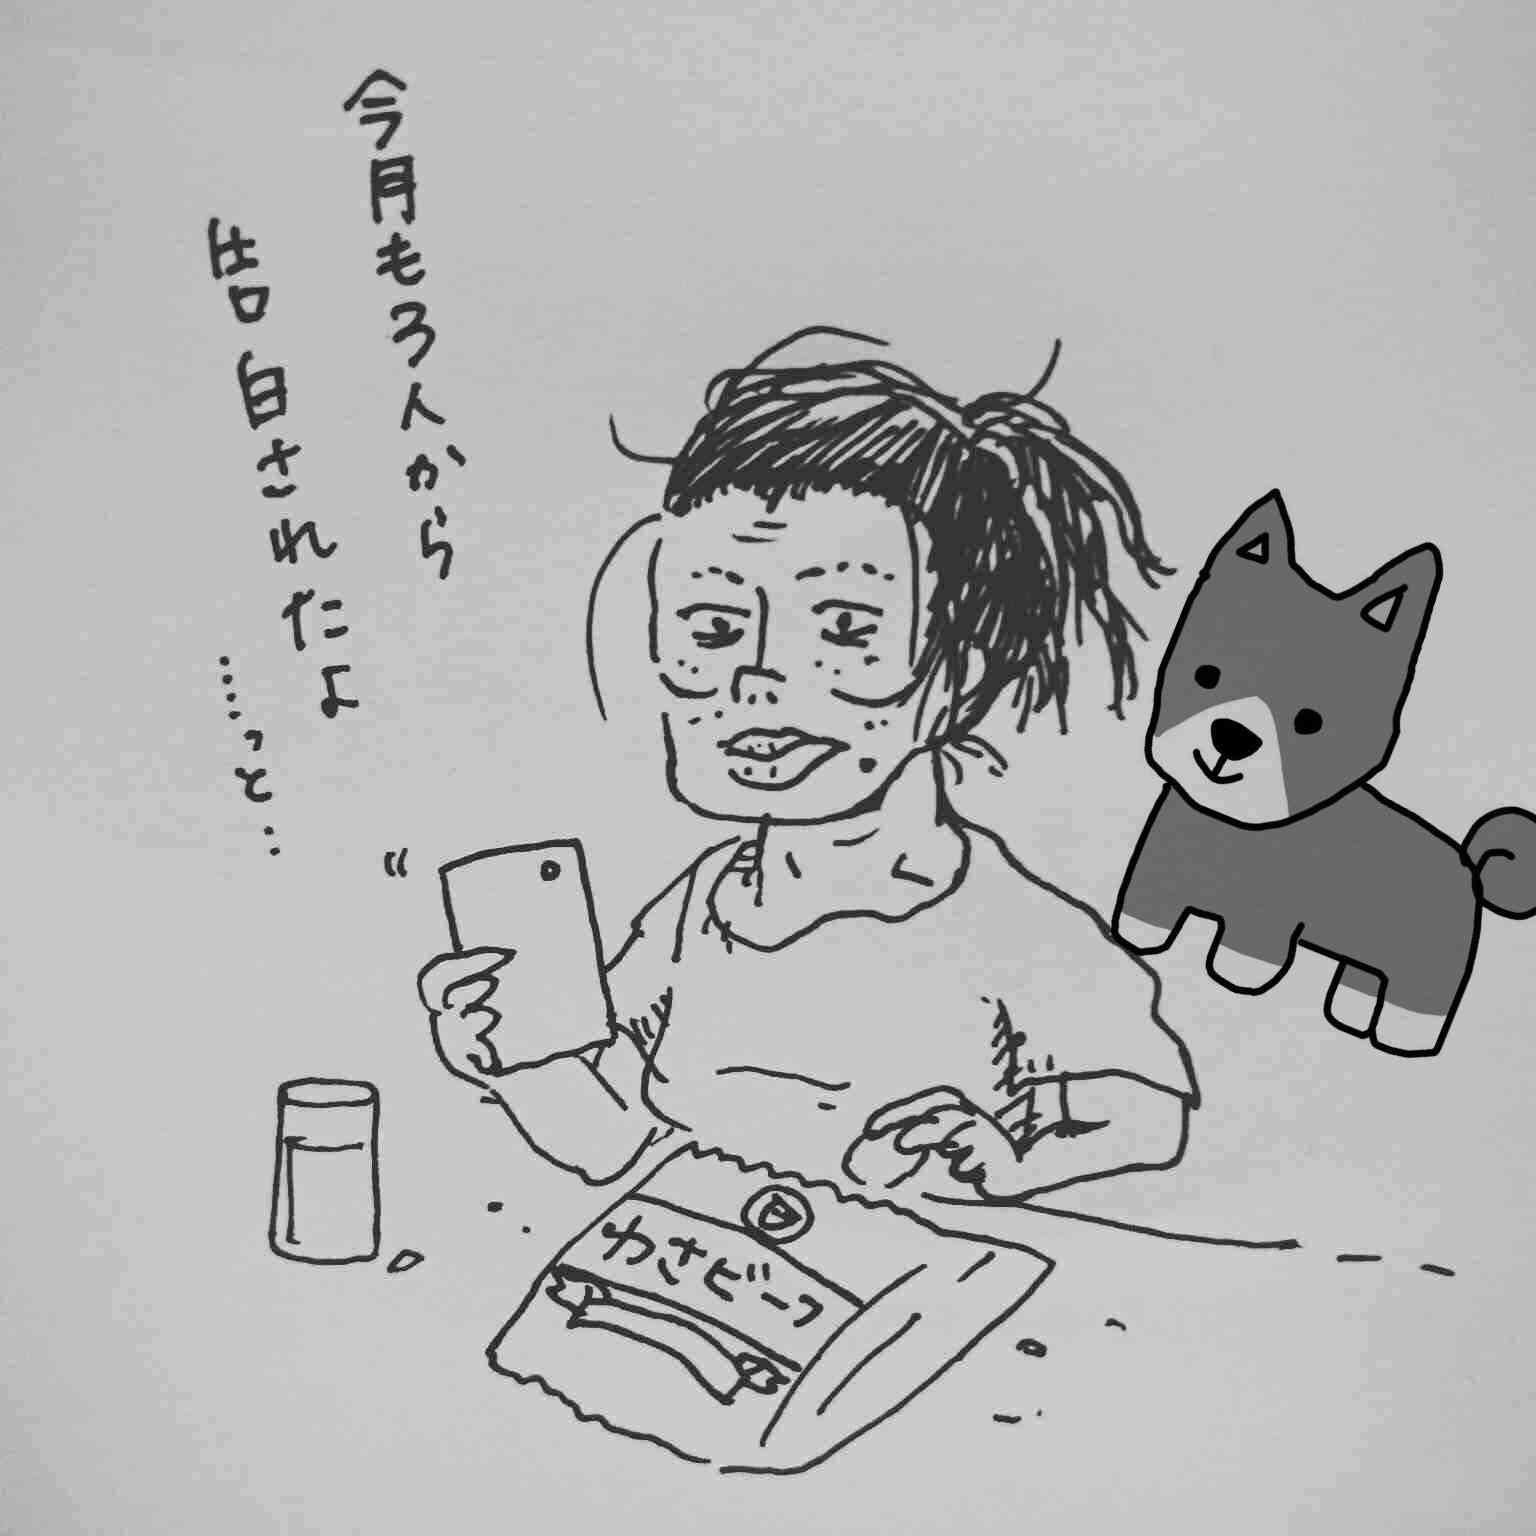 今月もろ人から
告白されたよ
……っと…
わさビーフ